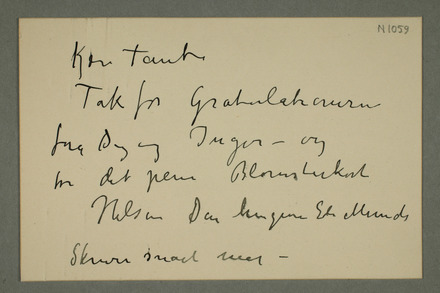 N1059
Kære Tante
Tak for Gratulationen
fra Dig og Inger – og
for det pene Blomsterkort
Hilsen Din hengivne Edv Munch
Skriver snart mer –